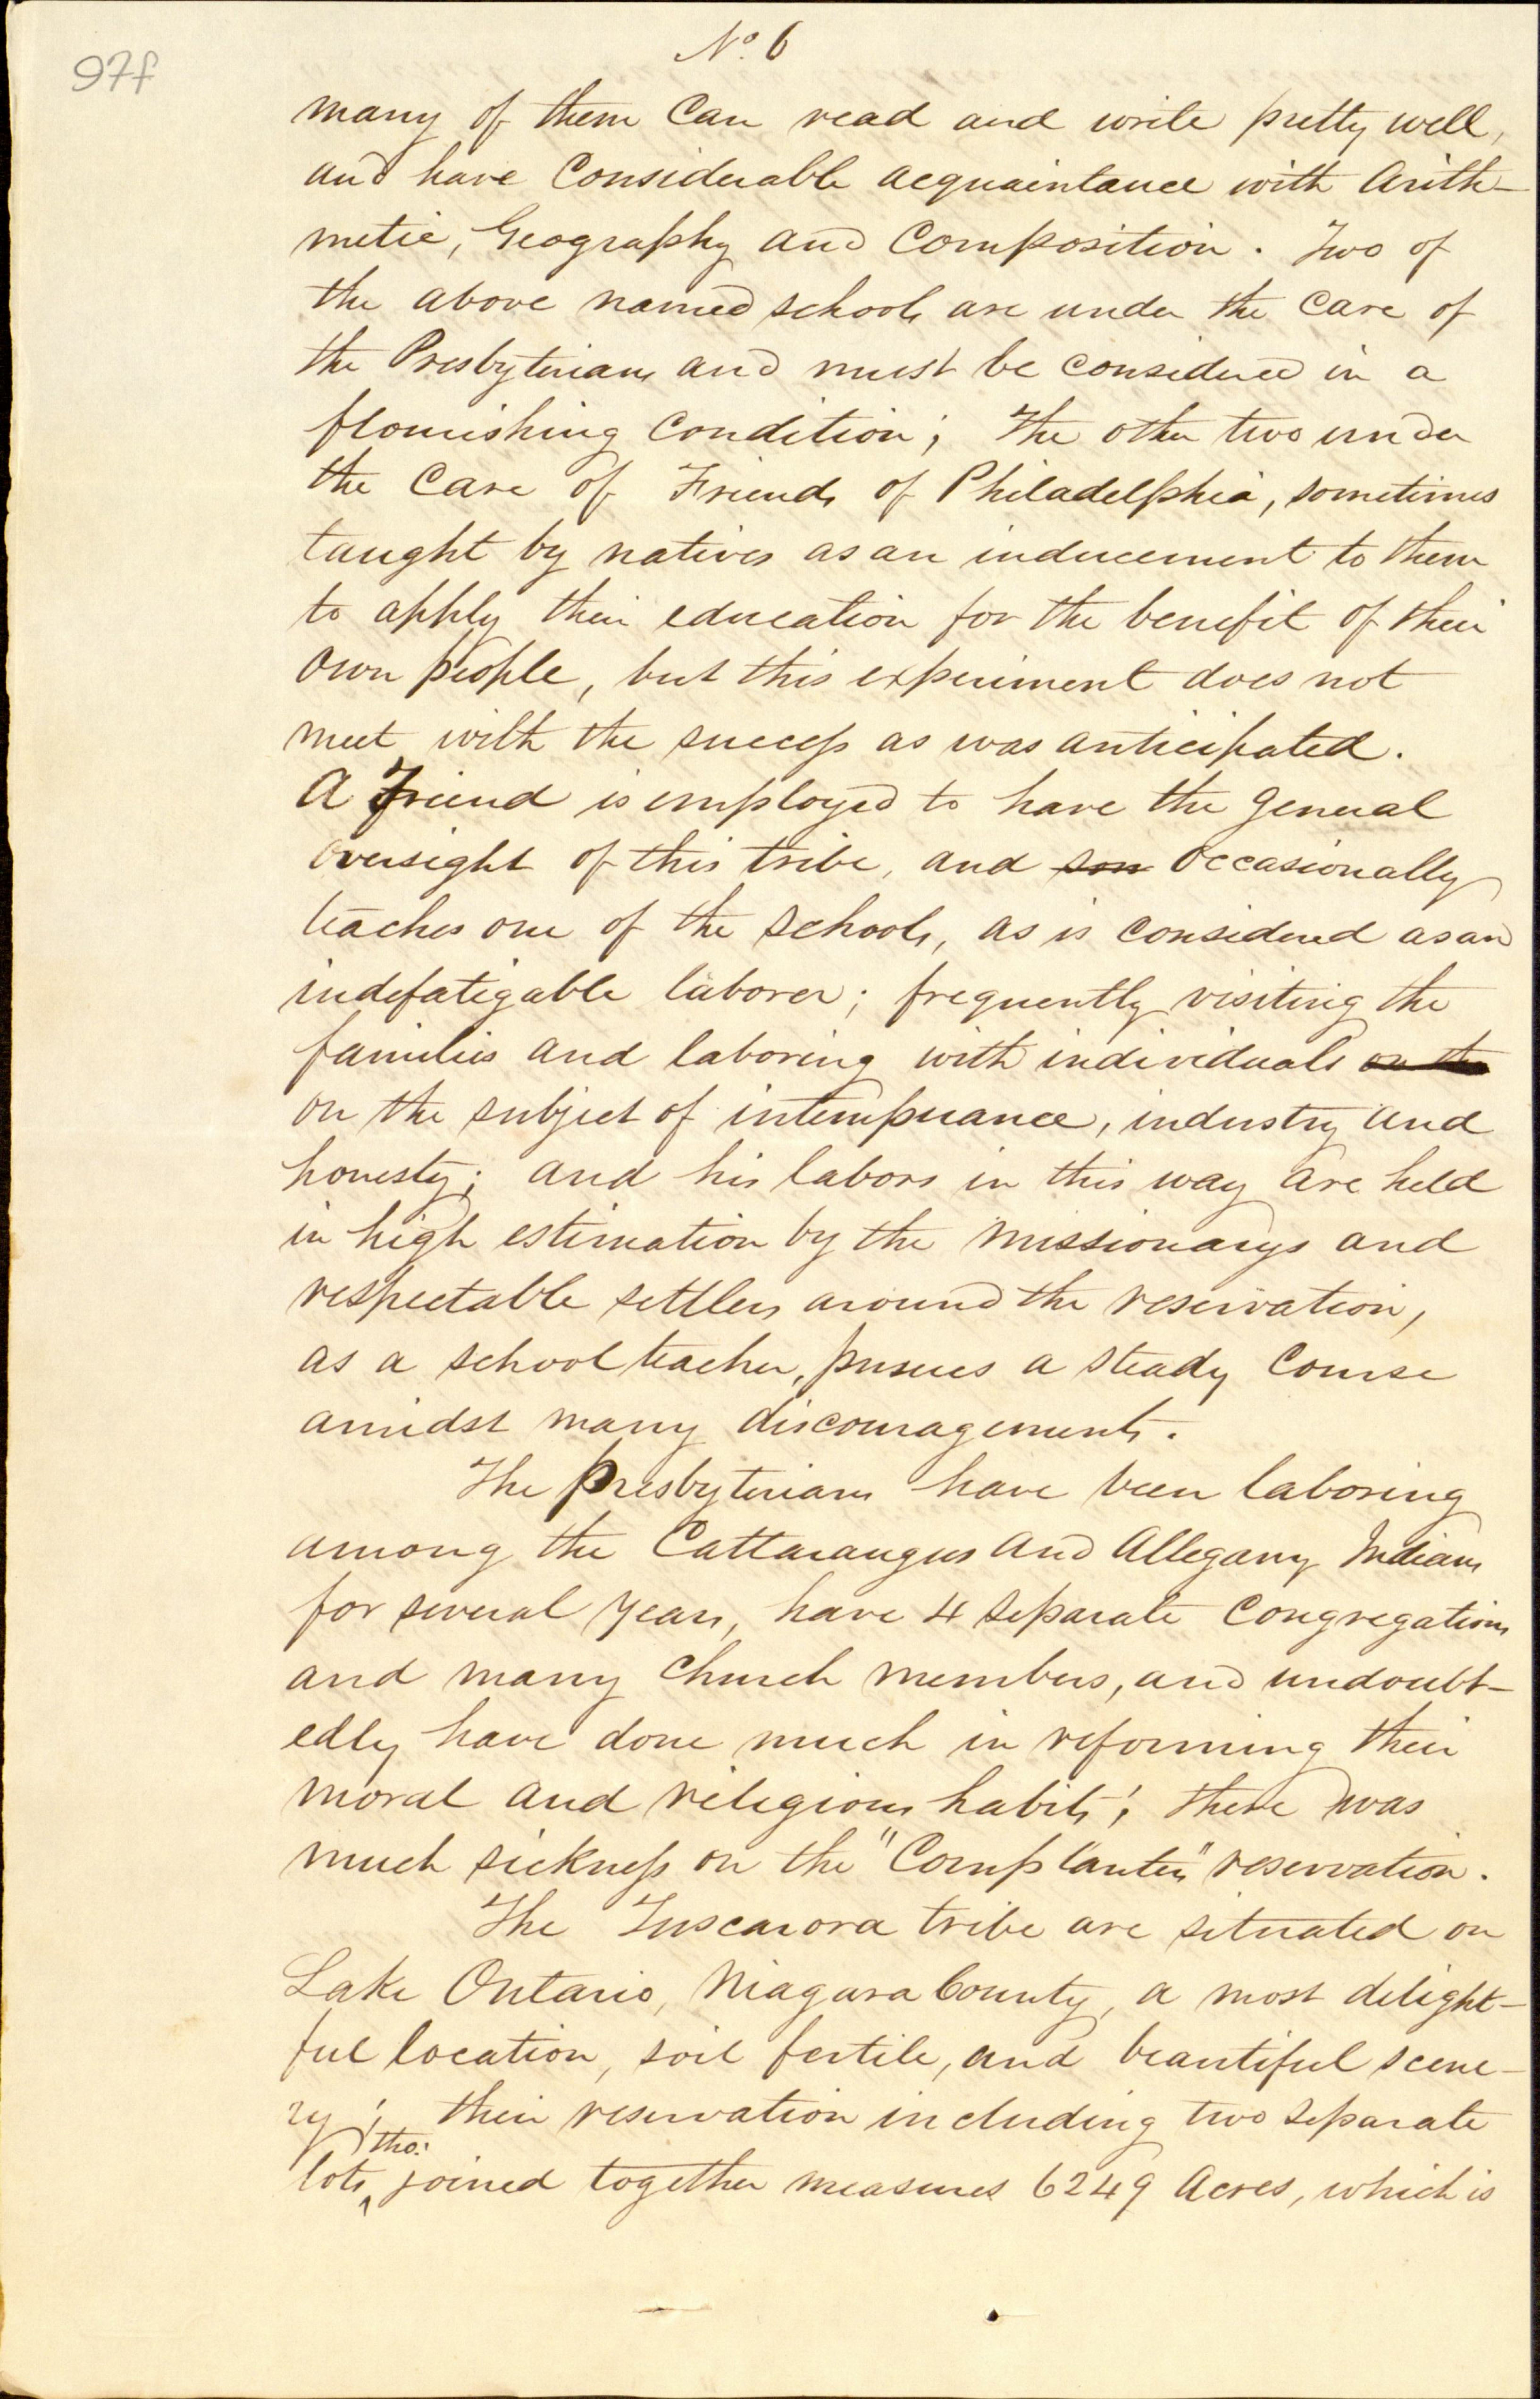 97f
No. 6
many of them Can read and write pretty well,
and have Considerable acquaintance with Arith-
metic, Geography and Composition. Two of
the above named schools are under the Care of
the Presbyterians and must be considered in a
flourishing Condition; The other two under
the Care of Friends of Philadelphia, sometimes
taught by natives as an inducement to them
to apply their education for the benefit of their
own people, but this experiment does not
meet with the success as was anticipated.
A Friend is employed to have the General
oversight of this tribe, and som occasionally
teaches one of the schools, as is considered as an
indefatigable laborer; frequently visiting the
families and laboring with individuals on the
on the subject of intemperance, industry and
honesty; and his labors in this way are held
in high estimation by the missionarys and
respectable settlers around the reservation,
as a school teacher, pursues a steady Course
amidst many discouragements.
The Presbyterians have been laboring
among the Cattaraugus and Allegany Indians
for several years, have 4 separate Congregations
and many Church members, and undoubt-
edly have done much in reforming their
moral and religious habits; there was
much sickness on the "Cornplanters" reservation.
The Tuscarora tribe are situated on
Lake Ontario, Niagara County, a most delight-
ful location, soil fertile, and beautiful scene-
ry; their reservation including two separate
lots, tho: joined together measures 6249 Acres, which is